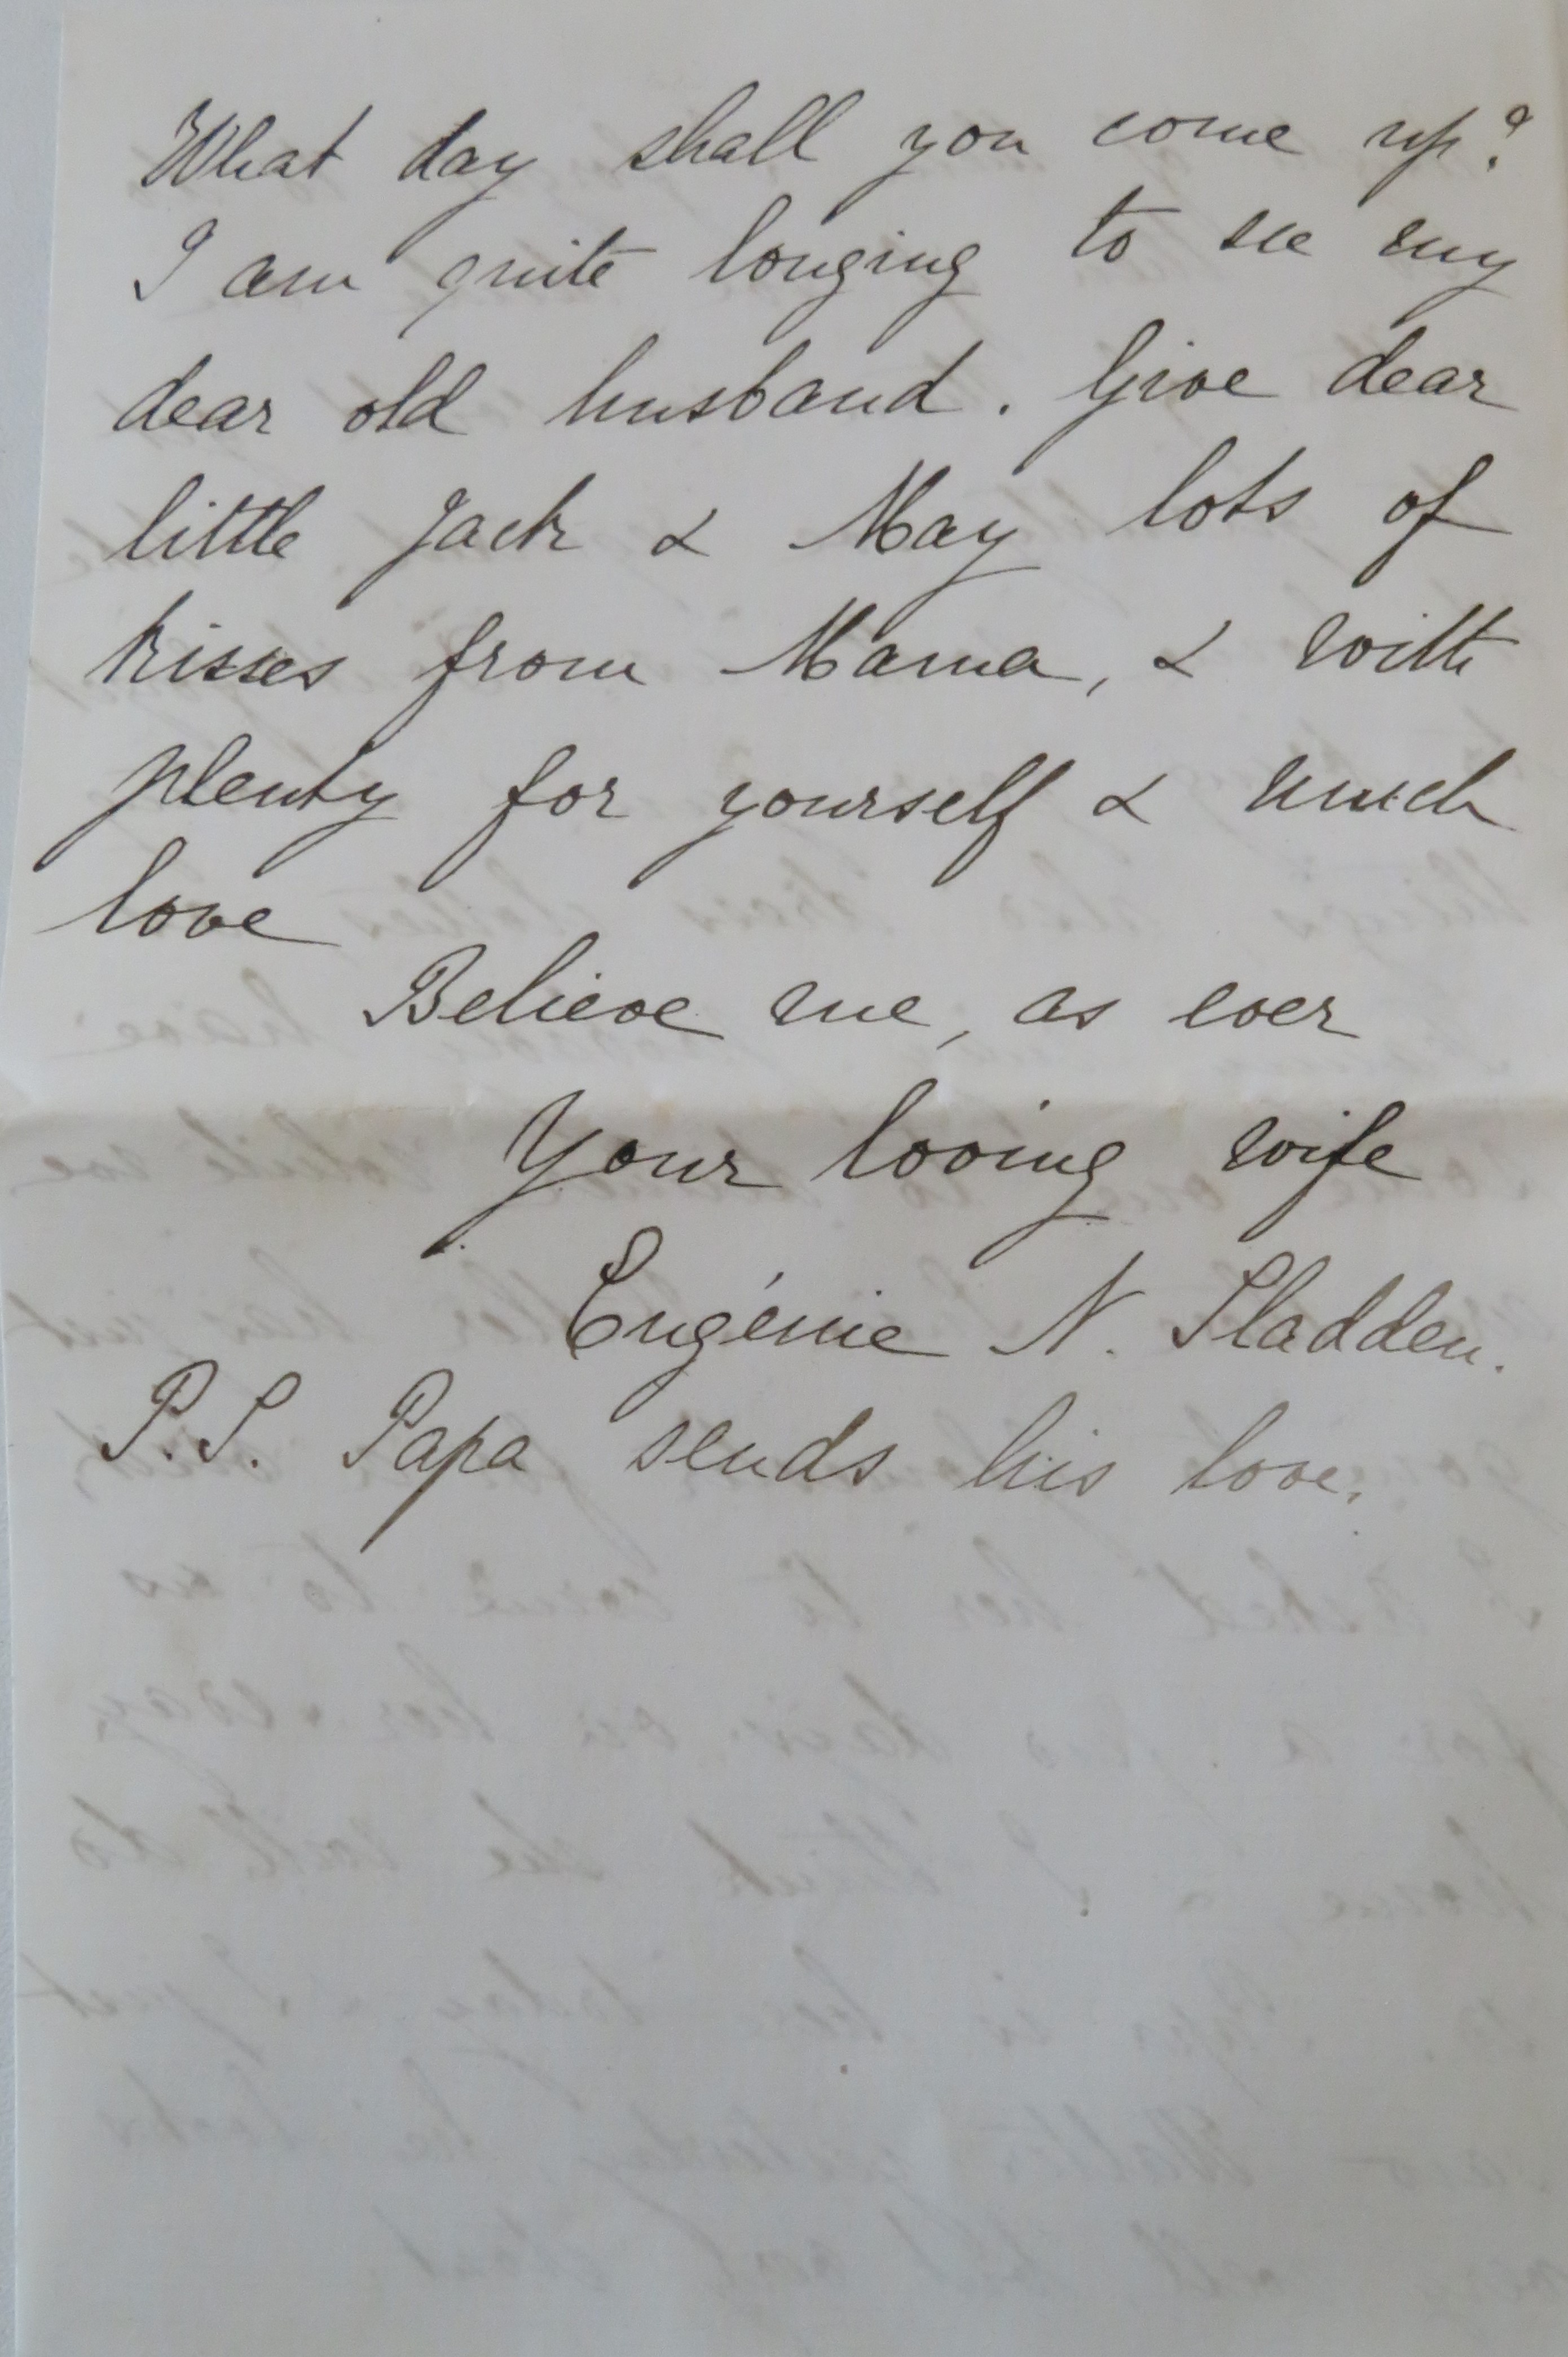 What day shall you come up?
I am quite longing to see my
dear old husband. Give dear
little Jack & May lots of
kisses from Mama, & with
plenty for yourself & much
love
Believe me, as ever
Your loving wife
Eugénie N. Sladden.
P.S. Papa sends his love.